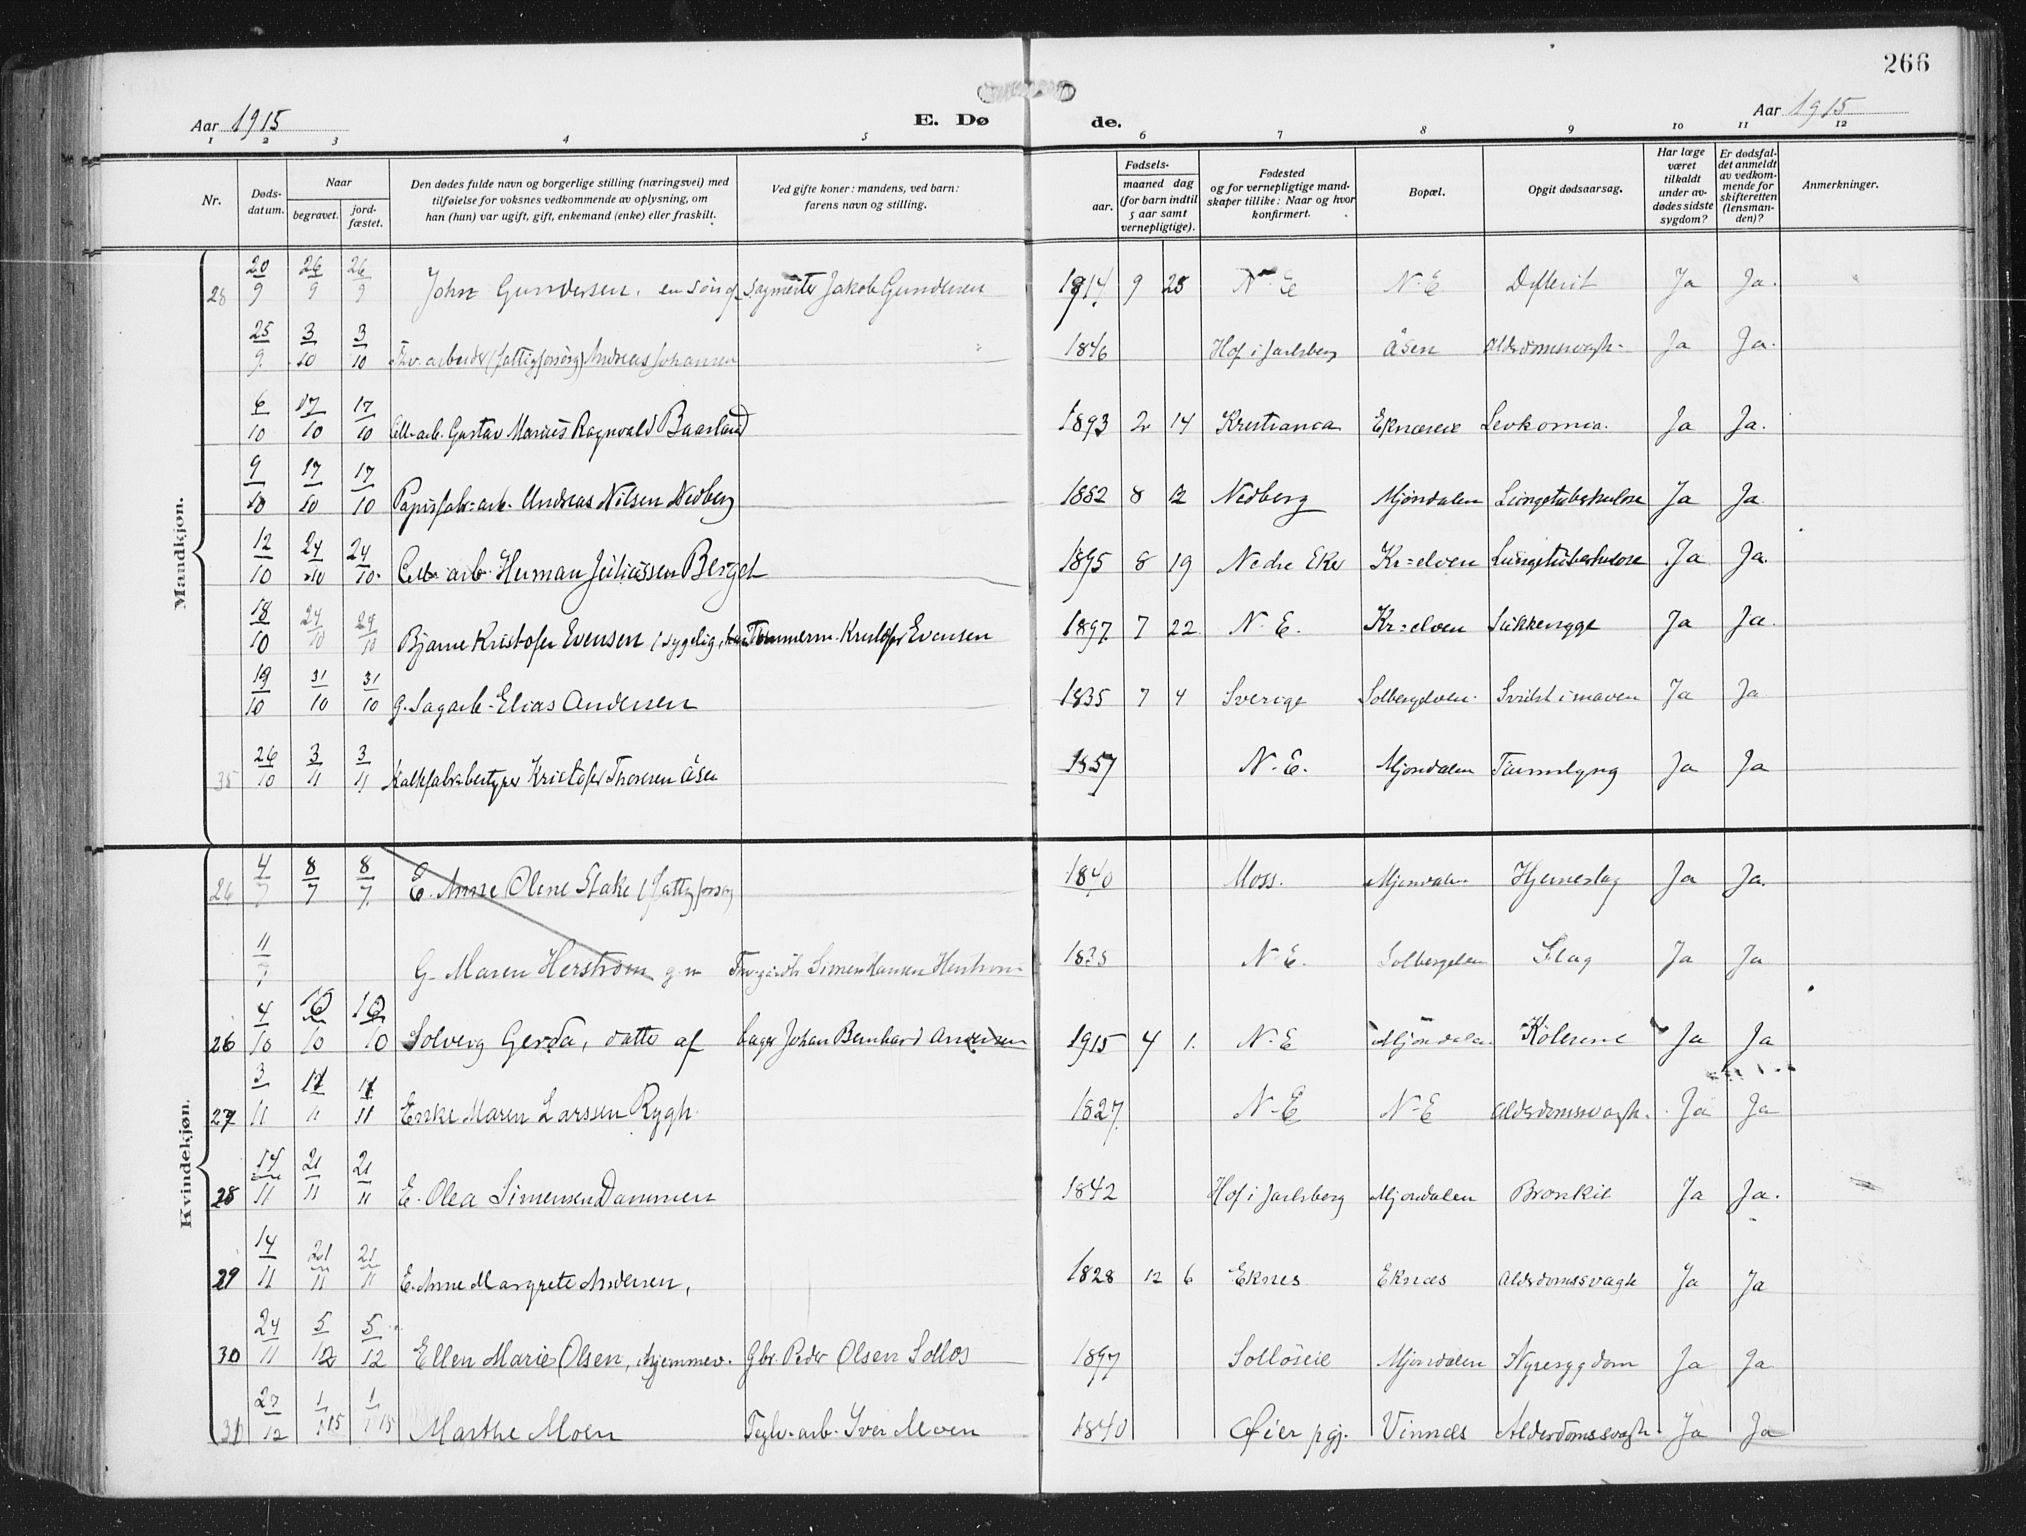 266
Aar 1915 E. Dø de. Aar 1915
1 2 3 4 5 6 7 8 9 10 11 12
Nr. Døds-datum. Naar begravet. jord-fæstet. Den dødes fulde navn og borgerlige stilling (næringsvei) med tilføielse for voksnes vedkommende av oplysning, om han (hun) var ugift, gift, enkemand (enke) eller fraskilt. Ved gifte koner: mandens, ved barn: farens navn og stilling. Fødsels- aar. maaned dag (for barn indtil 5 aar samt vernepligtige). Fødested og for vernepligtige mand-skaper tillike: Naar og hvor konfirmert. Bopæl. Opgit dødsaarsag. Har læge været tilkaldt under av-dødes sidste sygdom? Er dødsfal-det anmeldt av vedkom-mende for skifteretten (lensman-den)? Anmerkninger.
Mandkjøn.
28 20/9 26/9 26/9 John Gundersen, en søn af Sagmester Jakob Gundersen 1914 9 28 N. E N. E Dyfterit Ja Ja.
25/9 3/10 3/10 arbeider (fattigforsørg) Andreas Johansen 1846 Hof i Jarlsberg Åsen Alderdomssvagh. Ja Ja.
6/10 17/10 17/10 Cell-arb. Gustav Marius Ragnvald Baarland 1893 2 14 Kristiania Eknæseie Levkomia. Ja Ja.
9/10 17/10 17/10 Papirfabr-arb. Andreas Nilsen Nedberg 1852 8 12 Nedberg Mjøndalen Lungetuberkulose Ja Ja.
12/10 24/10 24/10 Cell. arb. Herman Juliussen Berget 1895 8 19 Nedre Eker Kr=elven Lungetuberkulose Ja Ja.
18/10 29/10 29/10 Bjarne Kristofer Evensen (sygelig, Tømmerm. Kristofer Evensen 1897 7 22 N. E. Kr=elven Sukkersyge Ja Ja.
19/10 31/10 31/10 G. Sagarb. Elias Andersen 1835 7 4 Sverige Solbergelven Svulst i maven Ja Ja
35 26/10 3/11 3/11 Kalkfabr.bestyrer Kristofer Thoresen Åsen 1857 N. E. Mjøndalen Tarmslyng Ja Ja
Kvindekjøn.
26 4/7 8/7 8/7 E. Anne Oline Stake (fattigforsørg 1840 Moss. Mjøndalen Hjerneslag Ja Ja.
11/7 G. Maren Herstrøm g. m Simen Hansen Herstrøm 1835 N. E. Solbergelven Slag Ja Ja
26 4/10 10/10 10/10 Solveig Gerda, datter af Bager Johan Bernhard Andersen 1915 4 1. N. E Mjøndalen Kolerine Ja Ja
27 3/11 11/11 11/11 Enke Maren Larssen Rygh. 1827. N. E N. E Alderdomssvagh. Ja Ja
28 14/11 21/11 21/11 E. Olea Simensen Dammen 1842 Hof i Jarlsberg Mjøndalen Bronkit Ja Ja.
29 14/11 21/11 21/11 E. Anne Margrete Andersen, 1828 12 6 Eknes Eknæs Alderdomssvagh Ja Ja
30 24/11 5/12 5/12 Ellen Marie Olsen, hjemmev. Gbr. Peder Olsen Solløs 1897 Solløseie Mjøndalen Nyresygdom Ja Ja
31 27/12 1/1 15 1/1 15 Marthe Moen Teglv-arb. Iver Moen 1840 Øier pgj. Vinnæs Alderdomssvagh Ja Ja